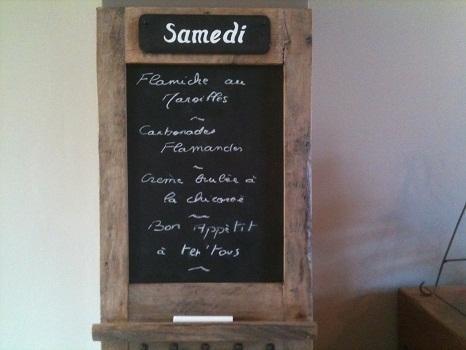 Samedi
Flamiche au
Maroilles
Carbonades
Flamandes
Creme brulée à
la chicorée
Bon Appètit
à ter'tous